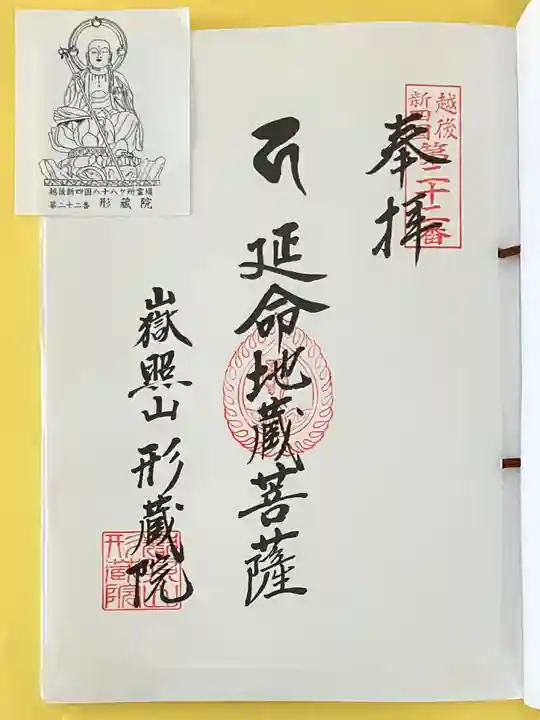 越後
新四国
第二十二番
奉拝
延命地蔵菩薩
嶽照山 形蔵院
形蔵院
越後新四国八十八ケ所霊場
第二十二番 形蔵院